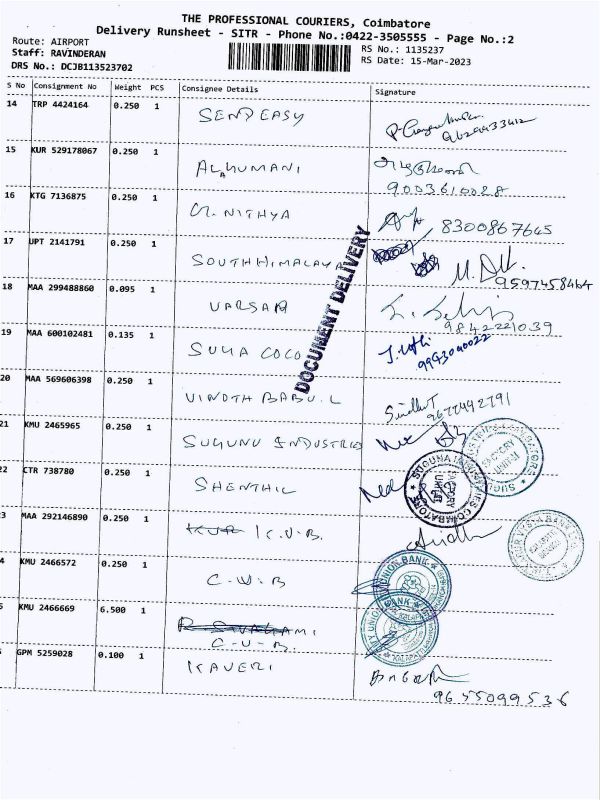 THE PROFESSIONAL COURIERS, Coimbatore
Delivery Runsheet - SITR - Phone No.:0422-3505555 - Page No.:2
Route: AIRPORT
Staff: RAVINDERAN
DRS No.: DCJB113523702
RS No.: 1135237
RS Date: 15-Mar-2023
S No Consignment No Weight PCS Consignee Details Signature
14 TRP 4424164 0.250 1 SENDEASY
15 KUR 529178067 0.250 1 ALKUMANI
9003610028
16 KTG 7136875 0.250 1 NITHYA
8300867645
17 UPT 2141791 0.250 1 SOUTHHIMALAYA
9597458464
18 MAA 299488860 0.095 1 VARSAN
9842221039
DOCUMENT DELIVERY
19 MAA 600102481 0.135 1 SUNA COCO
9993040022
20 MAA 569606398 0.250 1 VINOTH BABU.L
Sindhu T
9677492791
21 KMU 2465965 0.250 1 SUGUNU INDUSTRIE
22 CTR 738780 0.250 1 SHENTHIL
SUGUNA INDUSTRIES COIMBATORE
3 MAA 292146890 0.250 1 K.V.B.
4 KMU 2466572 0.250 1 C.U.B
UNION BANK
5 KMU 2466669 6.500 1
C.U.B.
CITY UNION BANK
GPM 5259028 0.100 1 KAVERI
9655099536